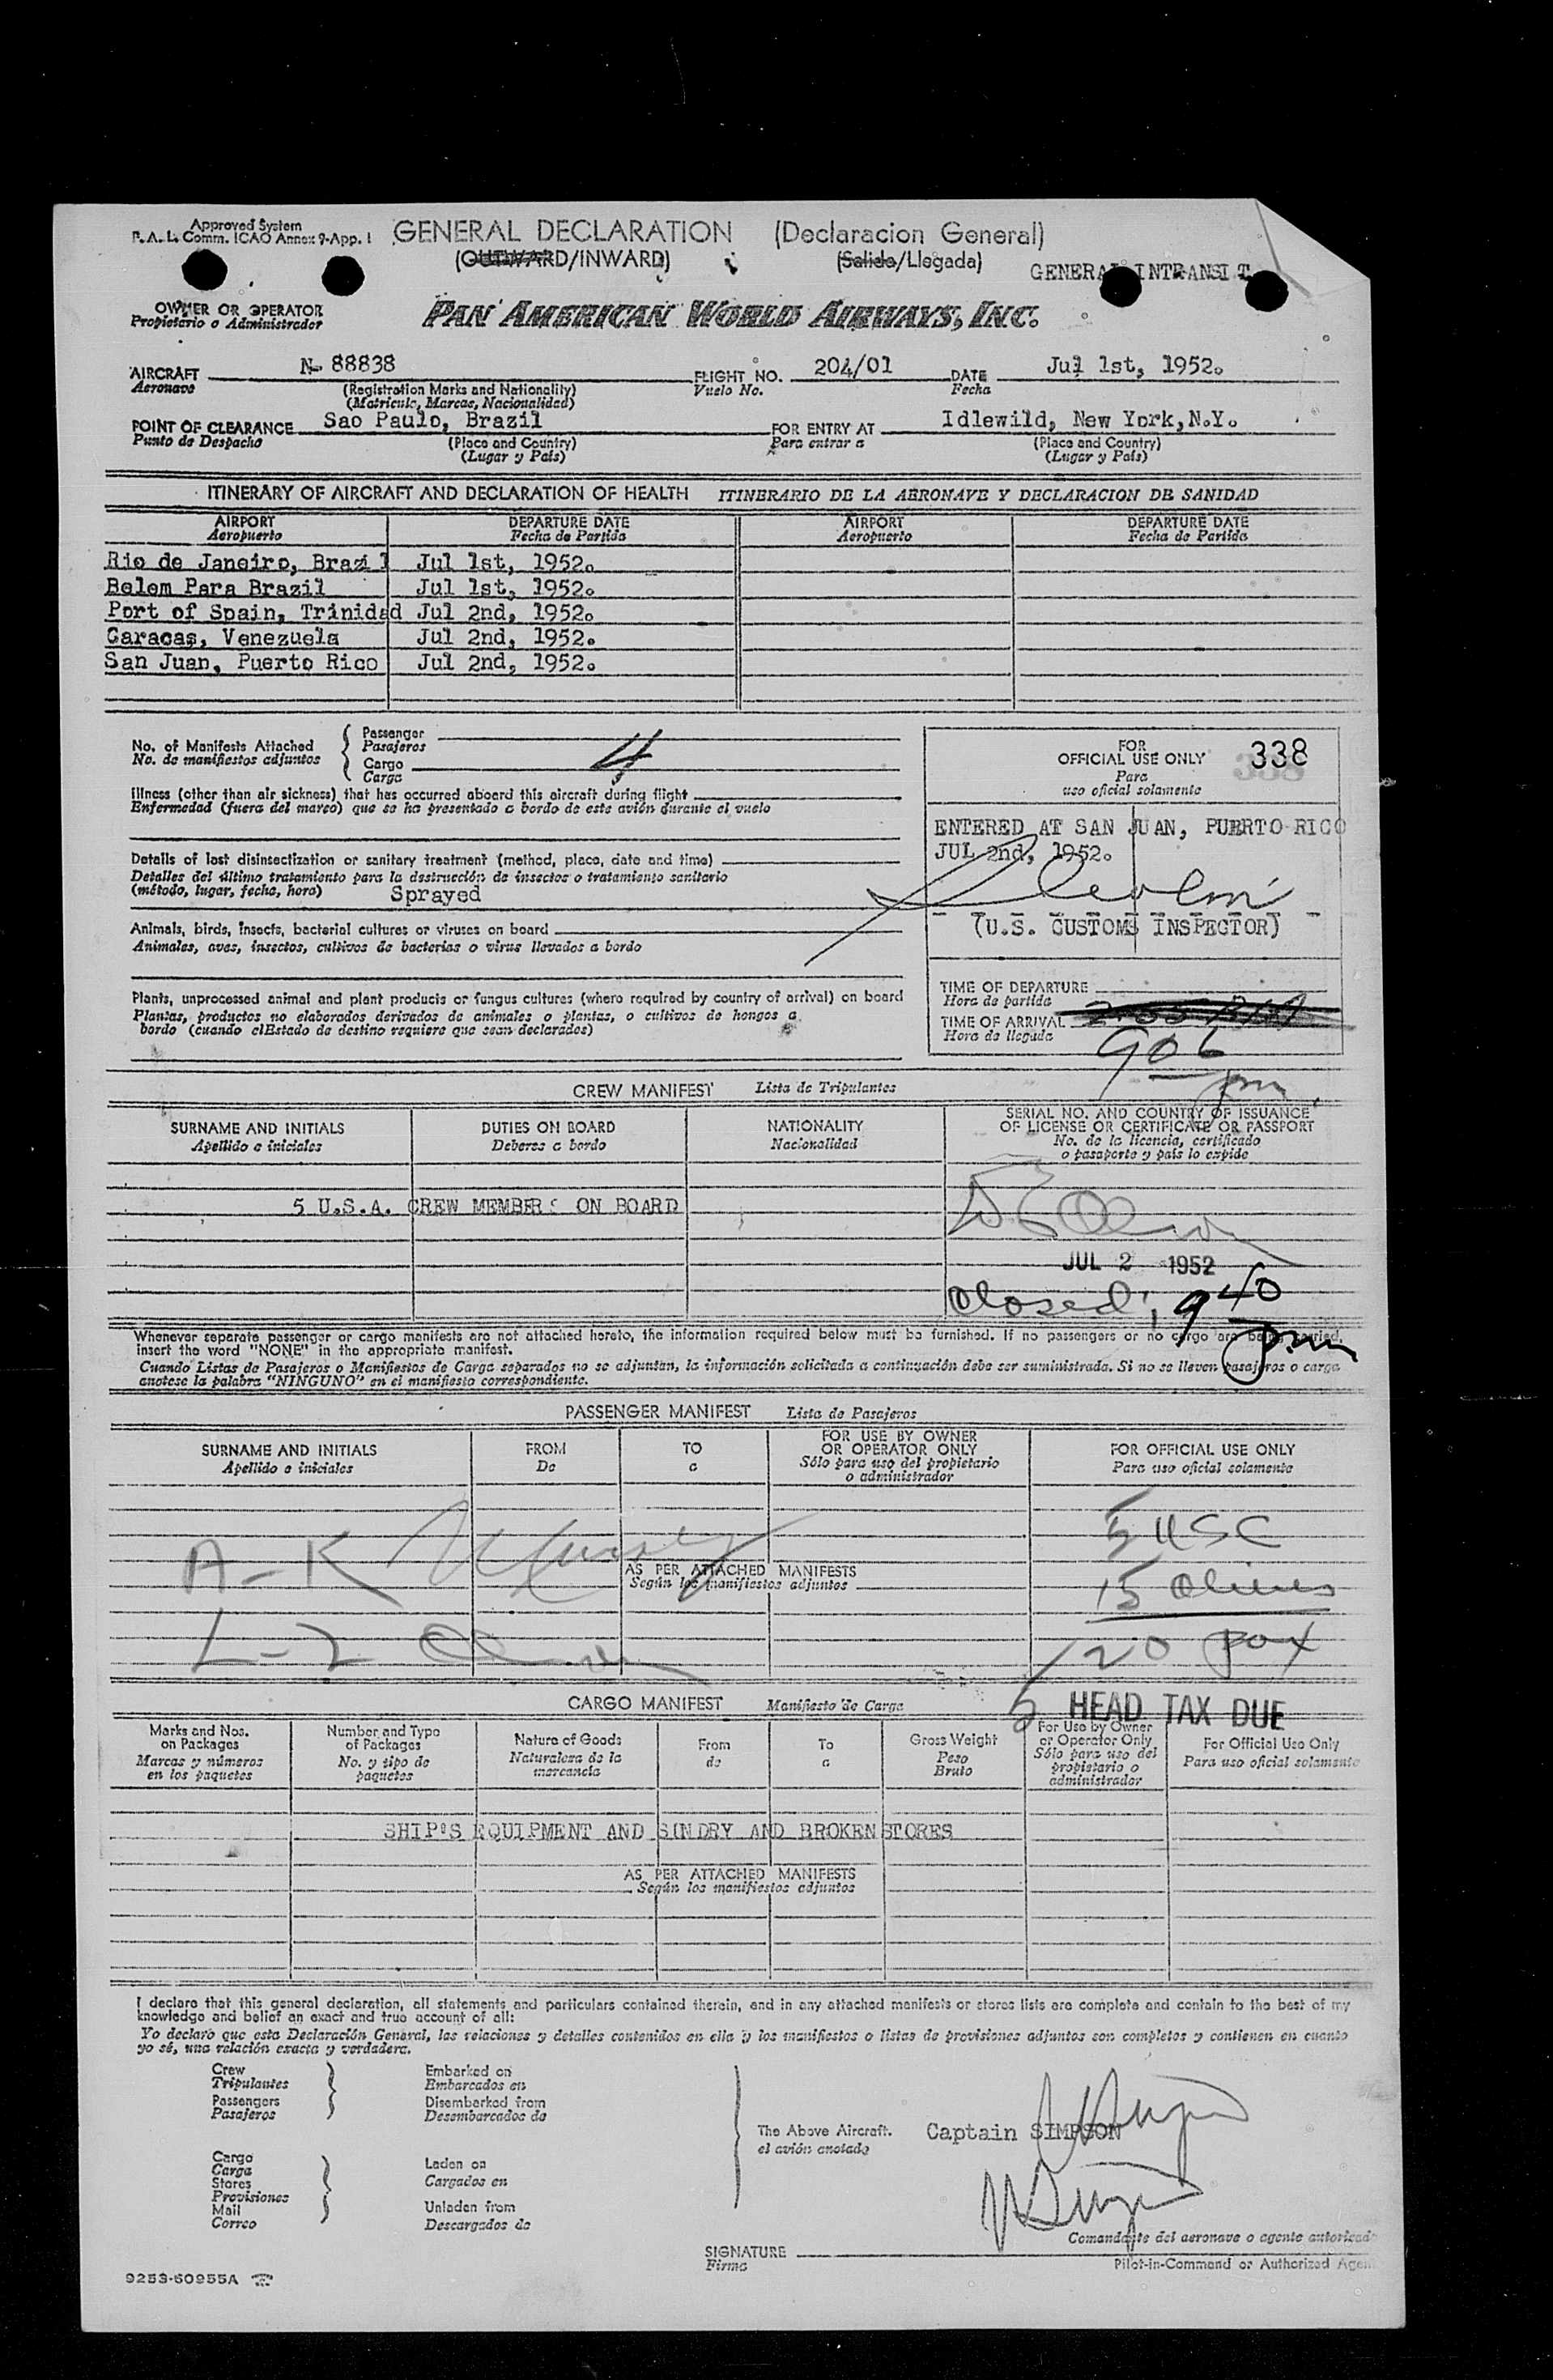 Approved System
F.A.L. Comm. ICAO Annex 9-App. 1
GENERAL DECLARATION (Declaracion General)
(OUTWARD/INWARD) (Salida/Llegada)
GENERAL INTRANSIT
OWNER OR OPERATOR
Propietario o Administrador
PAN AMERICAN WORLD AIRWAYS, INC.
AIRCRAFT N- 88838 FLIGHT NO. 204/01 DATE Jul 1st, 1952.
Aeronave (Registration Marks and Nationality) Vuelo No. Fecha
(Matricula, Marcas, Nacionalidad)
POINT OF CLEARANCE Sao Paulo, Brazil FOR ENTRY AT Idlewild, New York, N.Y.
Punto de Despacho (Place and Country) Para entrar a (Place and Country)
(Lugar y País) (Lugar y País)
ITINERARY OF AIRCRAFT AND DECLARATION OF HEALTH ITINERARIO DE LA AERONAVE Y DECLARACION DE SANIDAD
AIRPORT DEPARTURE DATE AIRPORT DEPARTURE DATE
Aeropuerto Fecha de Partida Aeropuerto Fecha de Partida
Rio de Janeiro, Brazil Jul 1st, 1952.
Belem Para Brazil Jul 1st, 1952.
Port of Spain, Trinidad Jul 2nd, 1952.
Caracas, Venezuela Jul 2nd, 1952.
San Juan, Puerto Rico Jul 2nd, 1952.
No. of Manifests Attached
No. de manifiestos adjuntos
Passenger
Pasajeros
Cargo
Carga
4
Illness (other than air sickness) that has occurred aboard this aircraft during flight
Enfermedad (fuera del mareo) que se ha presentado a bordo de este avión durante el vuelo
Details of last disinsectization or sanitary treatment (method, place, date and time)
Detalles del último tratamiento para la destrucción de insectos o tratamiento sanitario
(método, lugar, fecha, hora) Sprayed
Animals, birds, insects, bacterial cultures or viruses on board
Animales, aves, insectos, cultivos de bacterias o virus llevados a bordo
Plants, unprocessed animal and plant products or fungus cultures (where required by country of arrival) on board
Plantas, productos no elaborados derivados de animales o plantas, o cultivos de hongos a
bordo (cuando el Estado de destino requiere que sean declarados)
FOR
OFFICIAL USE ONLY 338
Para
uso oficial solamente
ENTERED AT SAN JUAN, PUERTO RICO
JUL 2nd, 1952.
(U.S. CUSTOMS INSPECTOR)
TIME OF DEPARTURE
Hora de partida
TIME OF ARRIVAL
Hora de llegada
906 pm
CREW MANIFEST Lista de Tripulantes
SURNAME AND INITIALS DUTIES ON BOARD NATIONALITY
Apellido e iniciales Deberes a bordo Nacionalidad
SERIAL NO. AND COUNTRY OF ISSUANCE
OF LICENSE OR CERTIFICATE OR PASSPORT
No. de la licencia, certificado
o pasaporte y país lo expide
5 U.S.A. CREW MEMBERS ON BOARD
JUL 2 1952
Closed; 9 40 pm
Whenever separate passenger or cargo manifests are not attached hereto, the information required below must be furnished. If no passengers or no cargo are being carried,
insert the word "NONE" in the appropriate manifest.
Cuando Listas de Pasajeros o Manifiestos de Carga separados no se adjuntan, la información solicitada a continuación debe ser suministrada. Si no se lleven pasajeros o carga
anotese la palabra "NINGUNO" en el manifiesto correspondiente.
PASSENGER MANIFEST Lista de Pasajeros
SURNAME AND INITIALS FROM TO
Apellido e iniciales De a
FOR USE BY OWNER
OR OPERATOR ONLY
Sólo para uso del propietario
o administrador
FOR OFFICIAL USE ONLY
Para uso oficial solamente
A-K
AS PER ATTACHED MANIFESTS
Según los manifiestos adjuntos
L-Z
5 USC
15 aliens
20 pax
5 HEAD TAX DUE
CARGO MANIFEST Manifiesto de Carga
Marks and Nos.
on Packages
Marcas y números
en los paquetes
Number and Type
of Packages
No. y tipo de
paquetes
Nature of Goods
Naturaleza de la
mercancía
From
de
To
a
Gross Weight
Peso
Bruto
For Use by Owner
or Operator Only
Sólo para uso del
propietario o
administrador
For Official Use Only
Para uso oficial solamente
SHIP'S EQUIPMENT AND SUNDRY AND BROKEN STORES
AS PER ATTACHED MANIFESTS
Según los manifiestos adjuntos
I declare that this general declaration, all statements and particulars contained therein, and in any attached manifests or stores lists are complete and contain to the best of my
knowledge and belief an exact and true account of all:
Yo declaro que esta Declaración General, las relaciones y detalles contenidos en ella y los manifiestos o listas de provisiones adjuntos son completos y contienen en cuanto
yo sé, una relación exacta y verdadera.
Crew
Tripulantes
Passengers
Pasajeros
Embarked on
Embarcados en
Disembarked from
Desembarcados de
Cargo
Carga
Stores
Provisiones
Mail
Correo
Laden on
Cargados en
Unladen from
Descargados de
The Above Aircraft.
el avión anotado
Captain SIMPSON
Comandante del aeronave o agente autorizado
SIGNATURE
Firma
Pilot-in-Command or Authorized Agent
9253-60955A